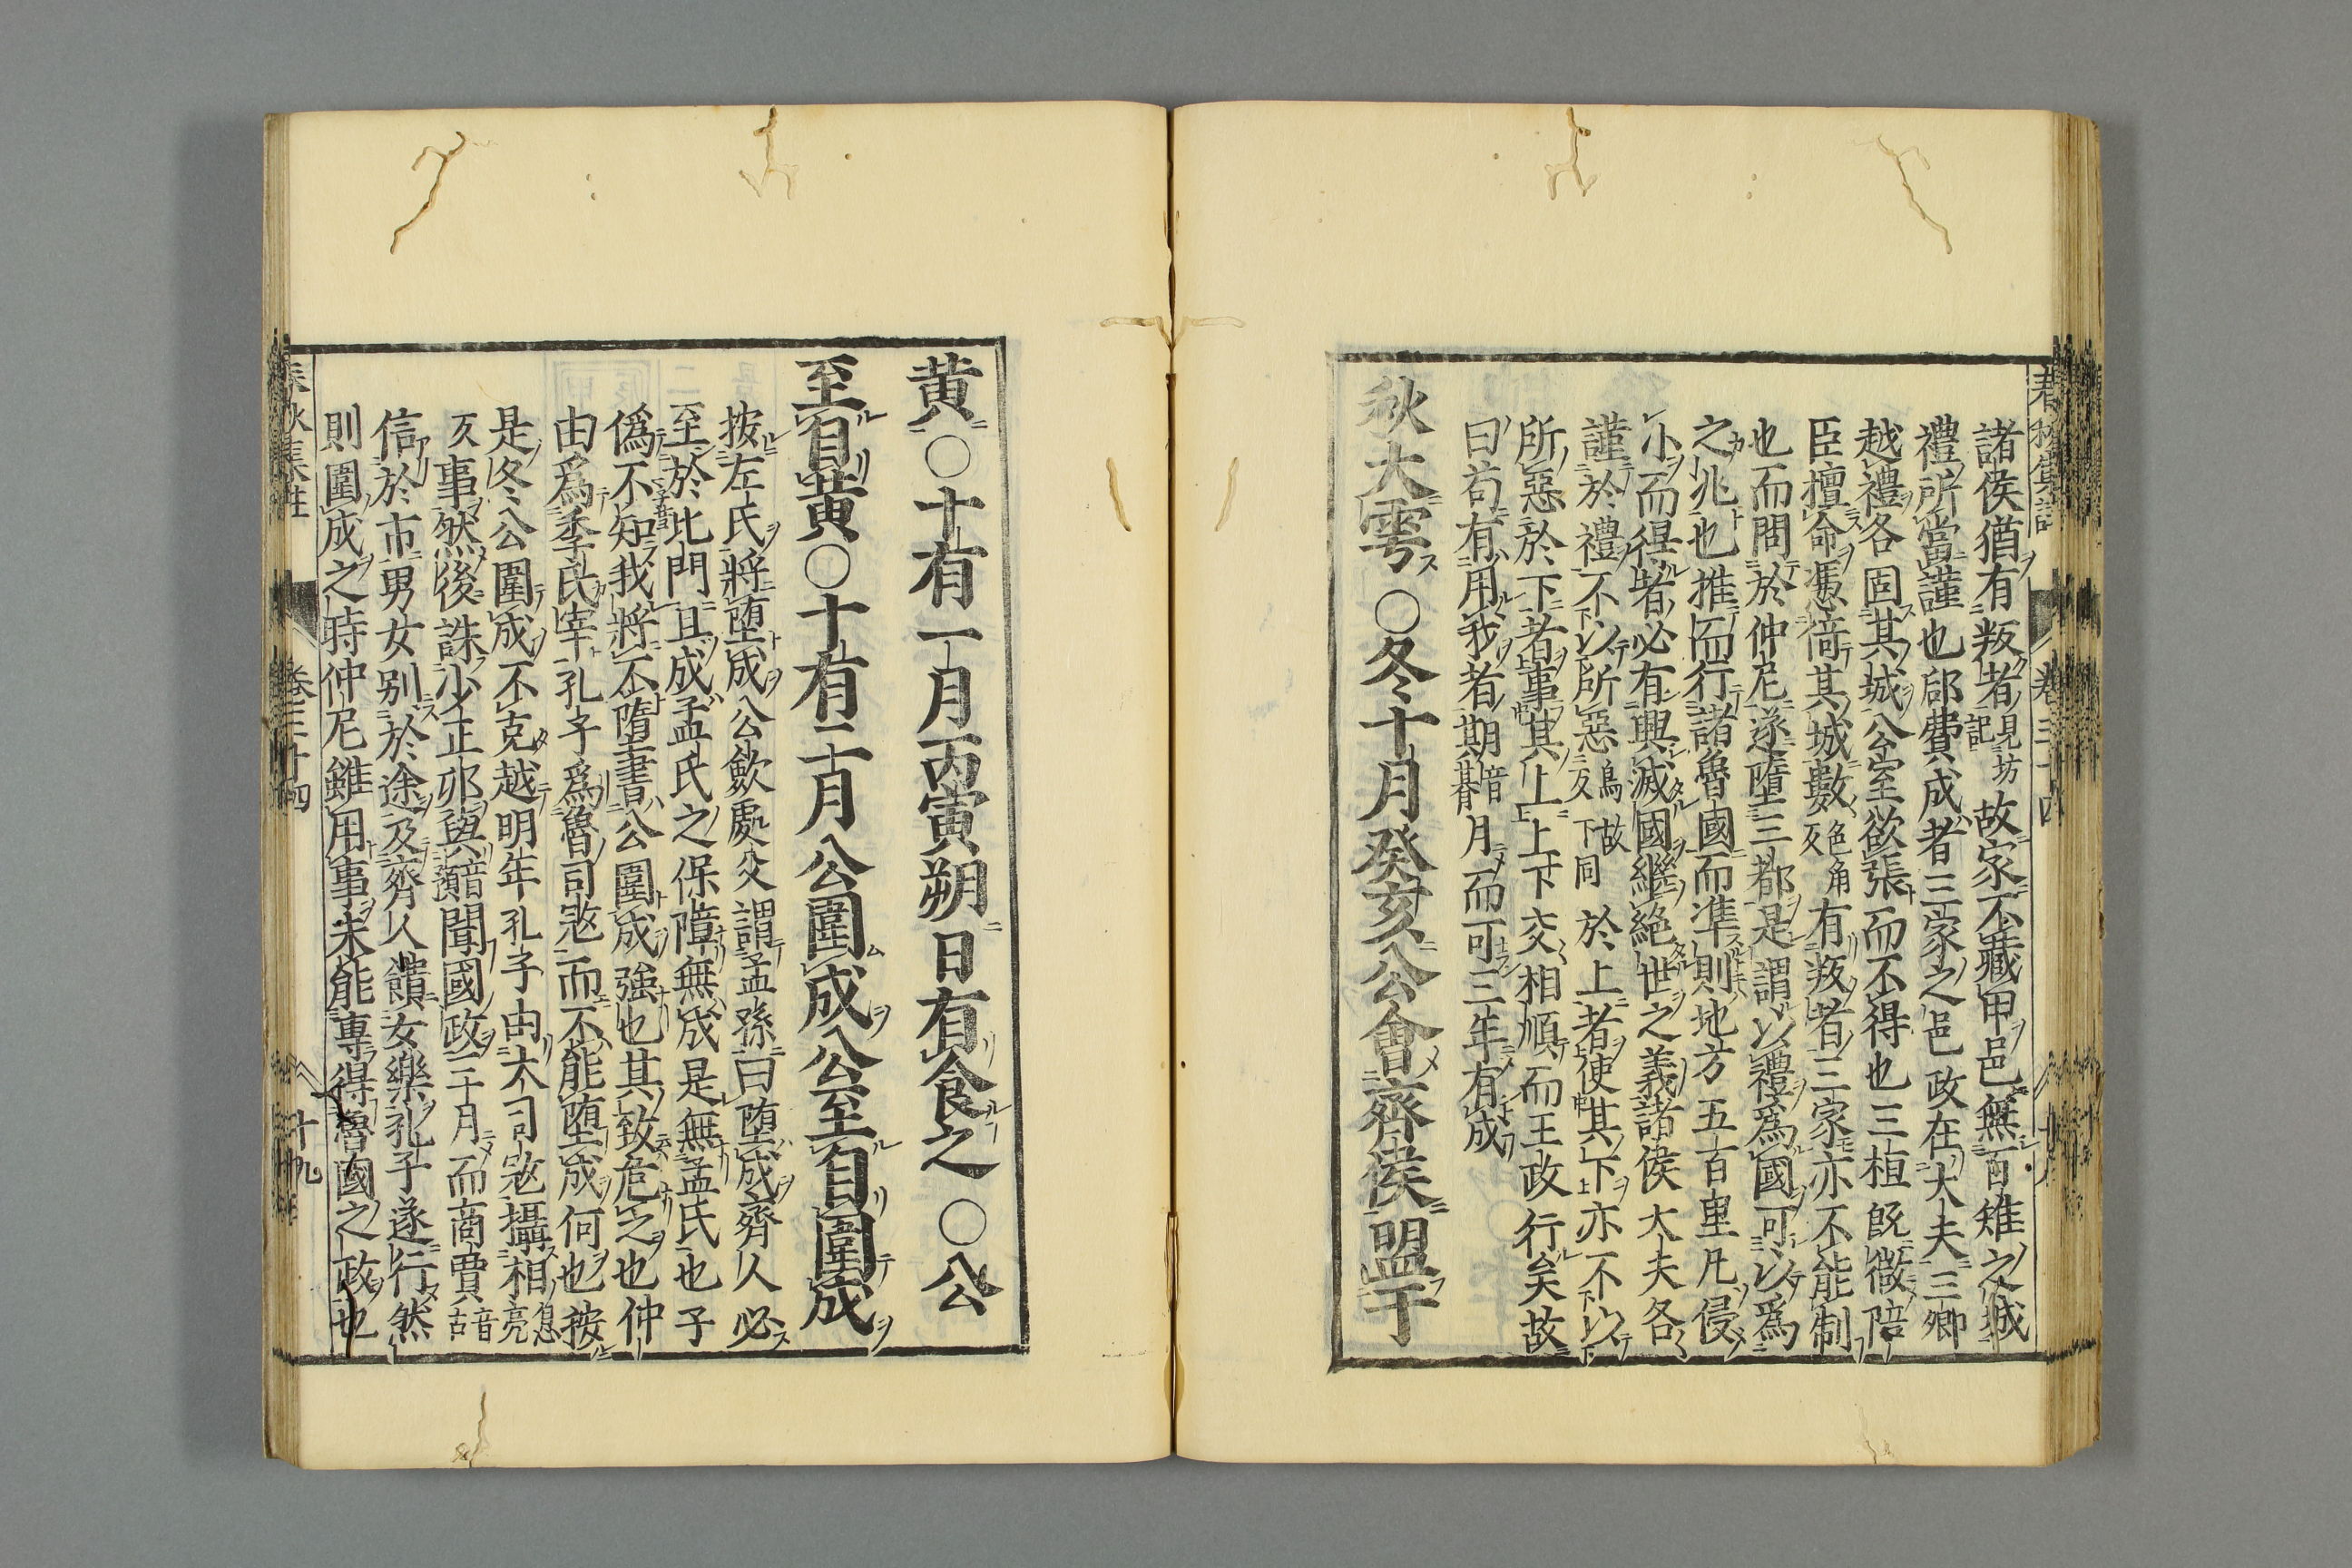 諸侯猶有叛者見坊記故家不藏甲邑無百雉之城
禮所當謹也郈費成者三家之邑政在大夫三卿
越禮各固其城公室欲張而不得也三桓既微陪
臣擅命憑倚其城數色角反有叛者三家亦不能制
也而問於仲尼遂墮三都是謂以禮爲國可以爲
之兆也推而行諸魯國而準則地方五百里凡侵
小而得者必有興滅國繼絕世之義諸侯大夫各
謹於禮不以所惡烏故反下同於上者使其下亦不以
所惡於下者事其上上下交相順而王政行矣故
曰苟有用我者期音朞月而可三年有成
秋大雩○冬十月癸亥公會齊侯盟于
黄○十有一月丙寅朔日有食之○公
至自黄○十有二月公圍成公至自圍成
按左氏將墮成公歛處父謂孟孫曰墮成齊人必
至於北門且成孟氏之保障無成是無孟氏也子
僞不知我將不墮書公圍成強也其致危之也仲
由爲季氏宰孔子爲魯司宼而不能墮成何也按
是冬公圍成不克越明年孔子由大司宼攝相息亮
反事然後誅少正卯與音預聞國政三月而商賈音古
信於市男女别於途及齊人饋女樂孔子遂行然
則圍成之時仲尼雖用事未能專得魯國之政也
春秋集註
卷三十四
十九